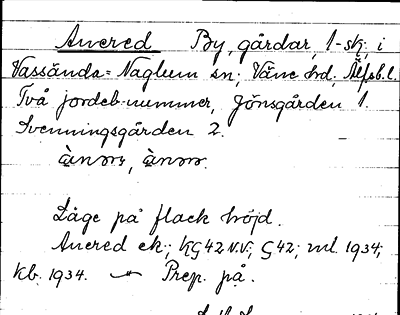 Anered By, gårdar, 1-sk; i
Vassända-Naglum sn; Väne hd; Älfsb.l.
Två jordeb-nummer, Jönsgården 1.
Svenningsgården 2.
Läge på flack höjd.
Anered ek; G 42 N.V.; G 42; ml. 1934;
kb. 1934. Prep. på.